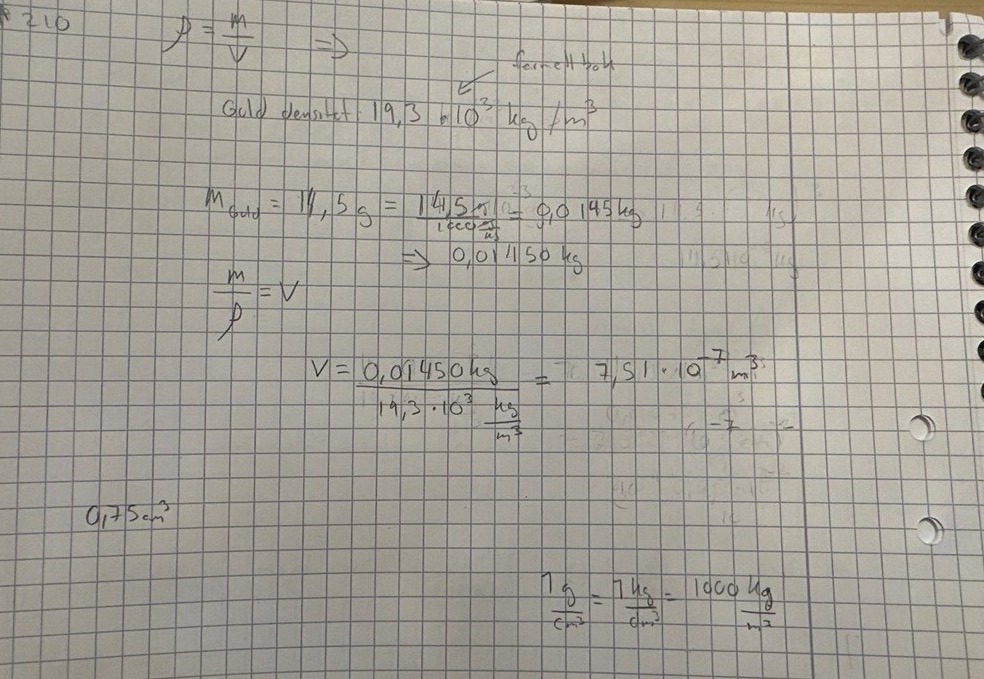 210 ρ = m/V ⇒
formelbok
Guld densitet: 19,3 · 10³ kg/m³
m_Guld = 14,5 g = 14,5 g / 1000 g/kg = 0,0145 kg
⇒ 0,01450 kg
m/ρ = V
V = 0,01450 kg / 19,3 · 10³ kg/m³ = 7,51 · 10⁻⁷ m³
0,75 cm³
1 g/cm³ = 1 kg/dm³ = 1000 kg/m³